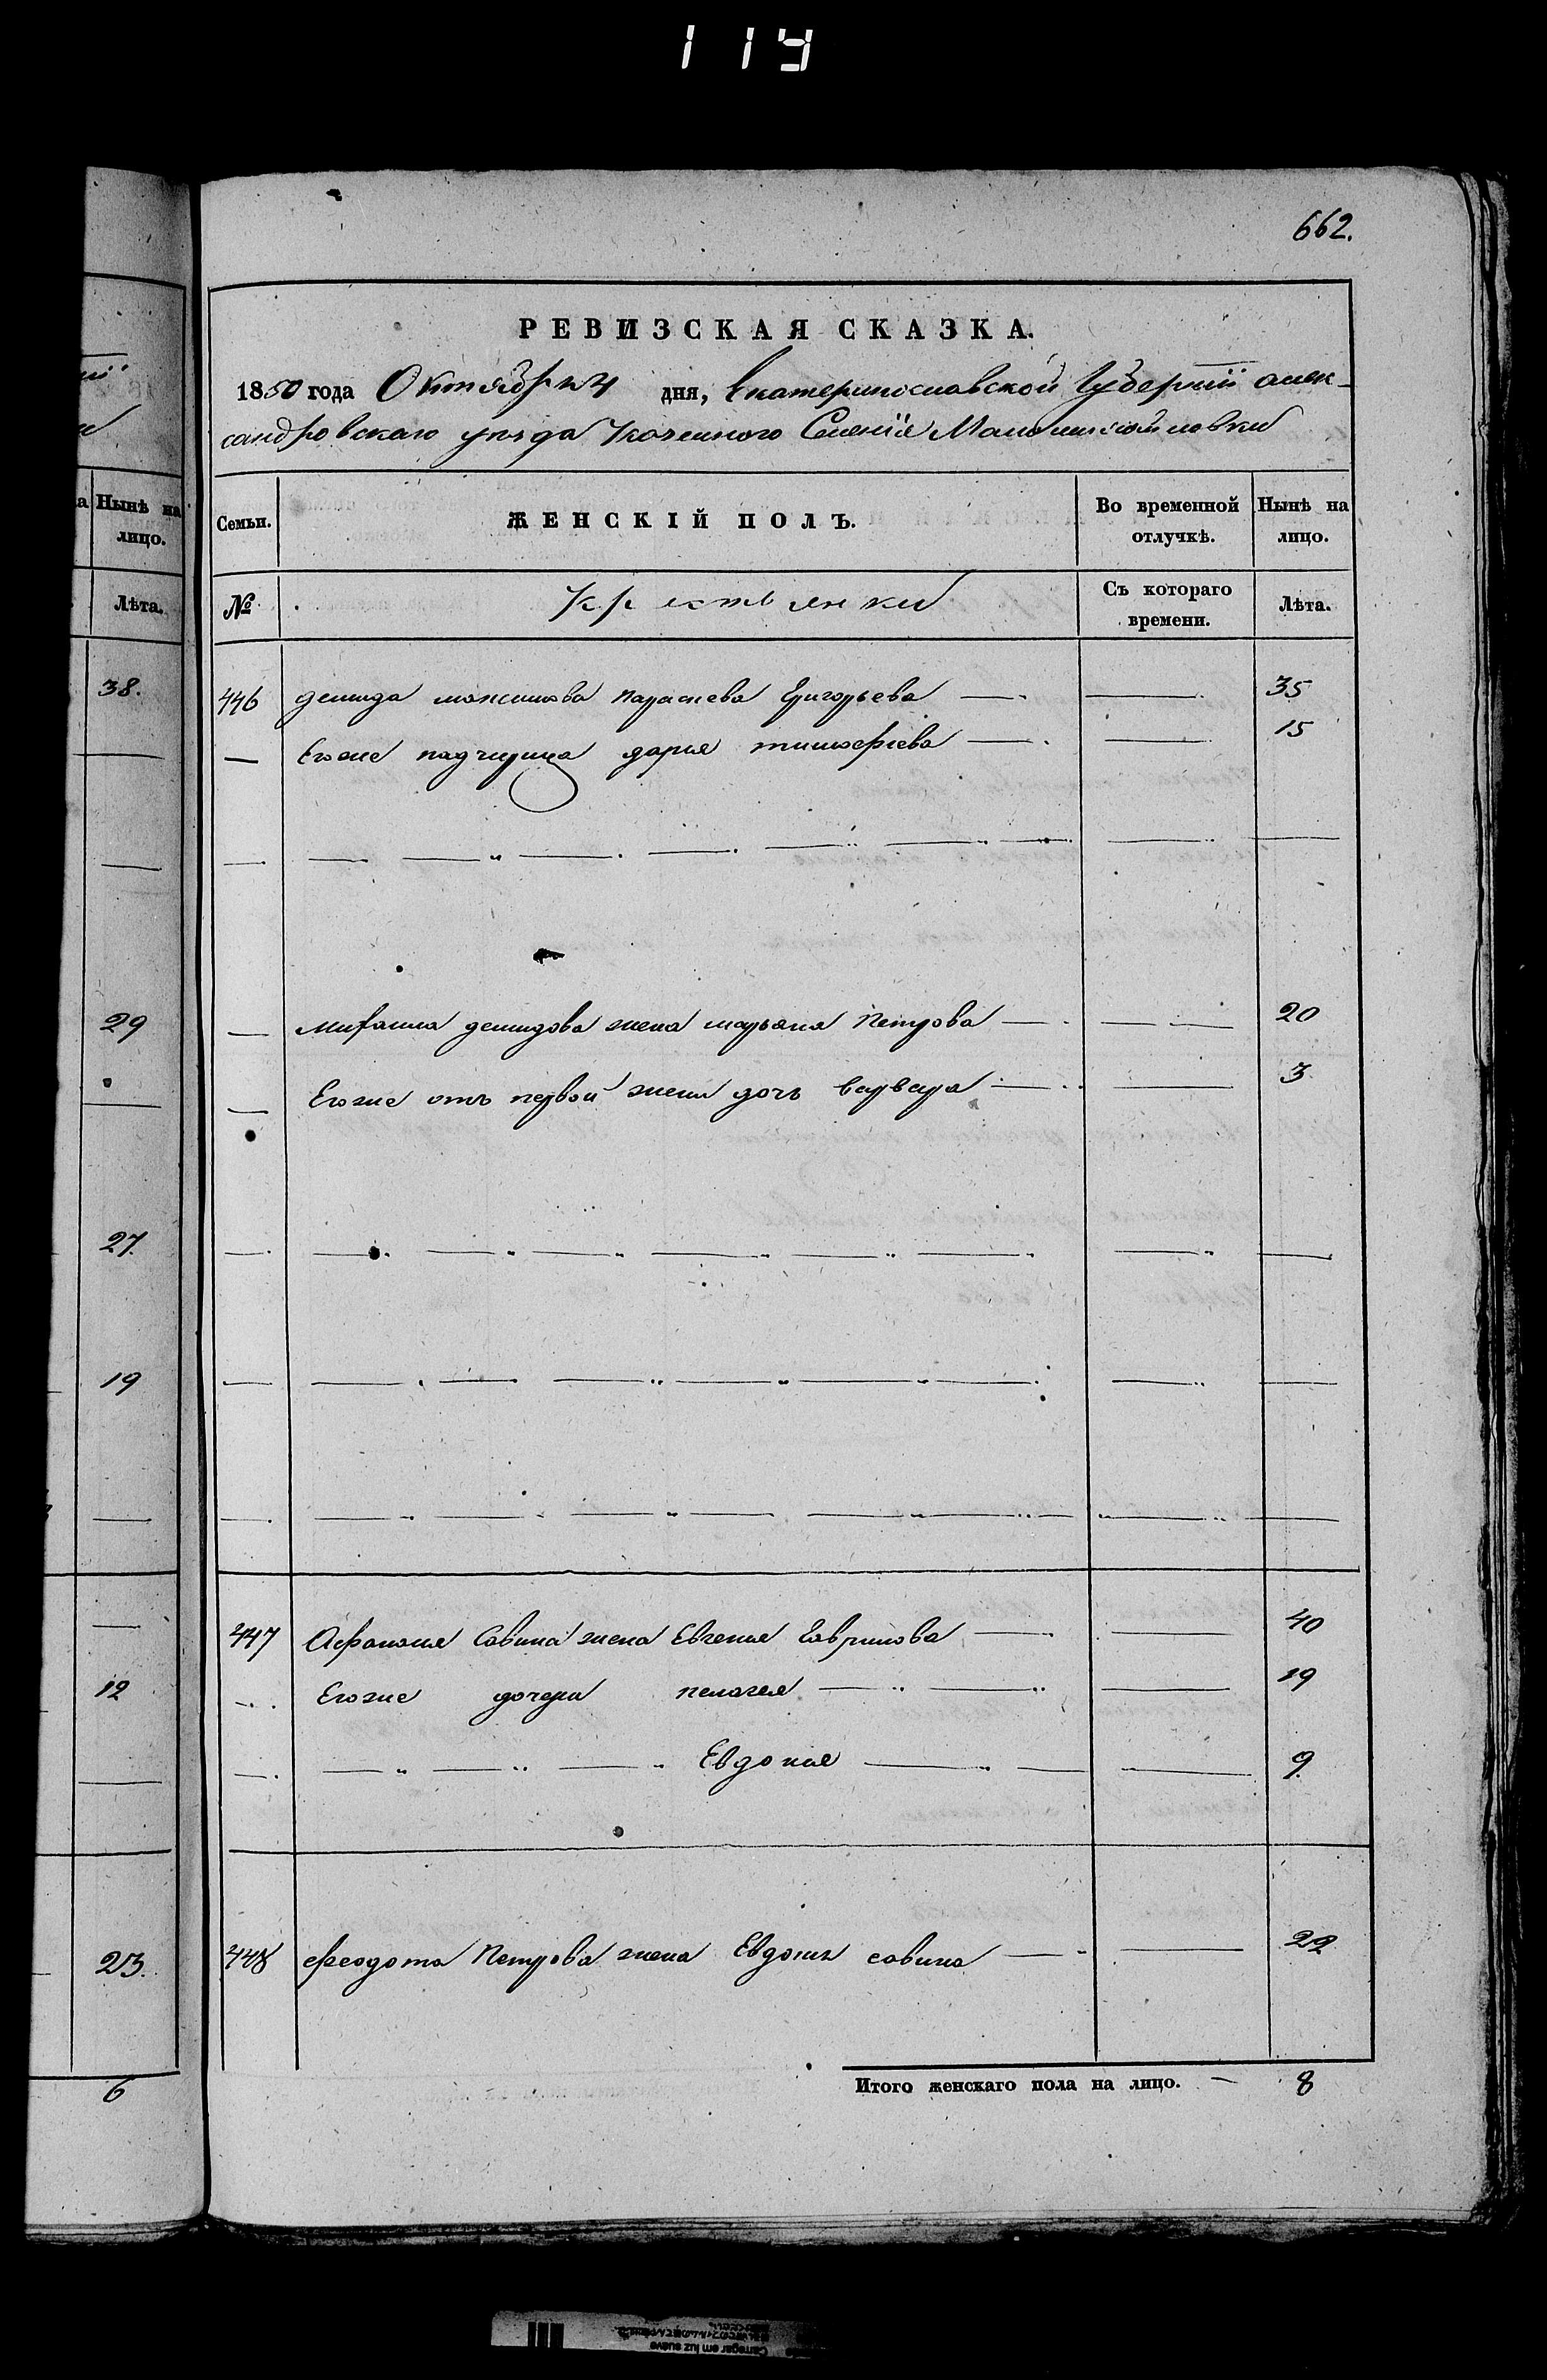 119
662.
РЕВИЗСКАЯ СКАЗКА.
1850 года Октября 4 дня, Екатеринославской Губернии алек-
сандровскаго уезда Казенного Селения Маломихайловки
Семьи.
ЖЕНСКІЙ ПОЛЪ.
Во временной отлучкѣ.
Нынѣ на лицо.
№
крестьянки
Съ котораго времени.
Лѣта.
446 демида максимова параскева Григорьева — — 35
— Егоже падчерица дарья тимофеева — — 15
— михаила демидова жена марьяна Петрова — — 20
— Егоже отъ первой жены дочь варвара — — 3
447 Афанасия Савина жена Евгения Гаврилова — — 40
— Егоже дочери пелагея — — 19
— Евдокия — — 9
448 феодота Петрова жена Евдокия савина — — 22
Итого женскаго пола на лицо. — 8
Нынѣ на
лицо.
Лѣта.
38.
29
27.
19
12
23.
6